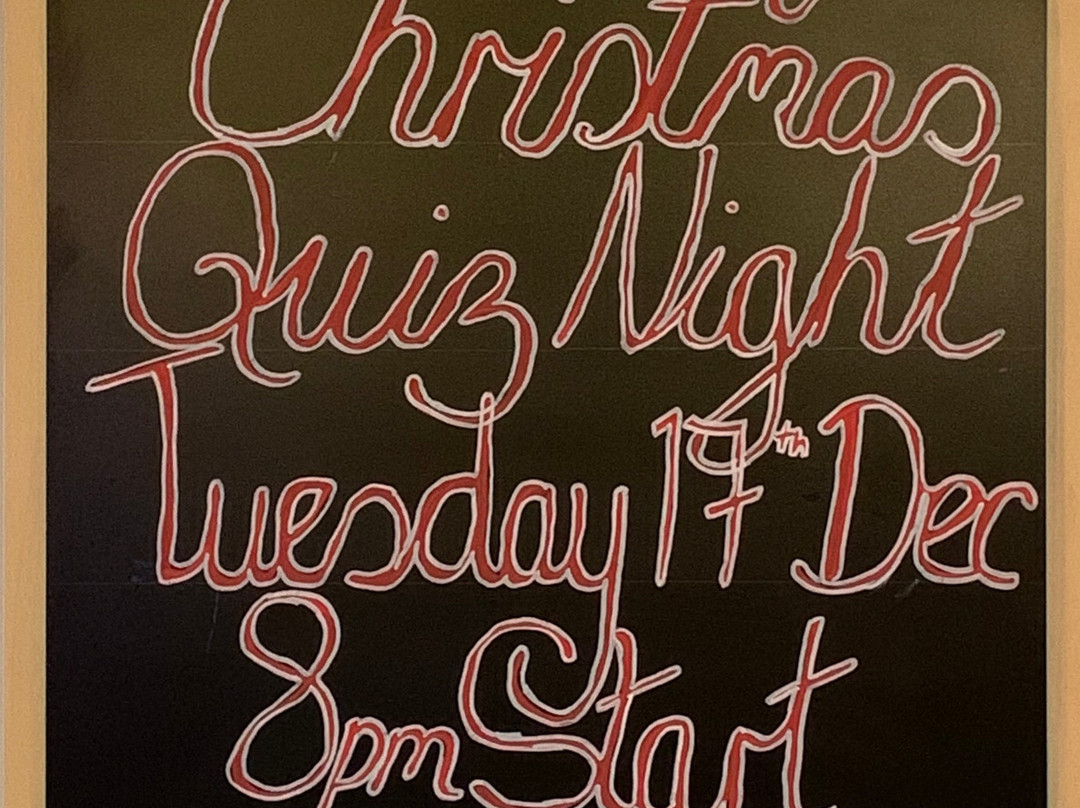 Christmas
Quiz Night
Tuesday 17th Dec
8pm Start